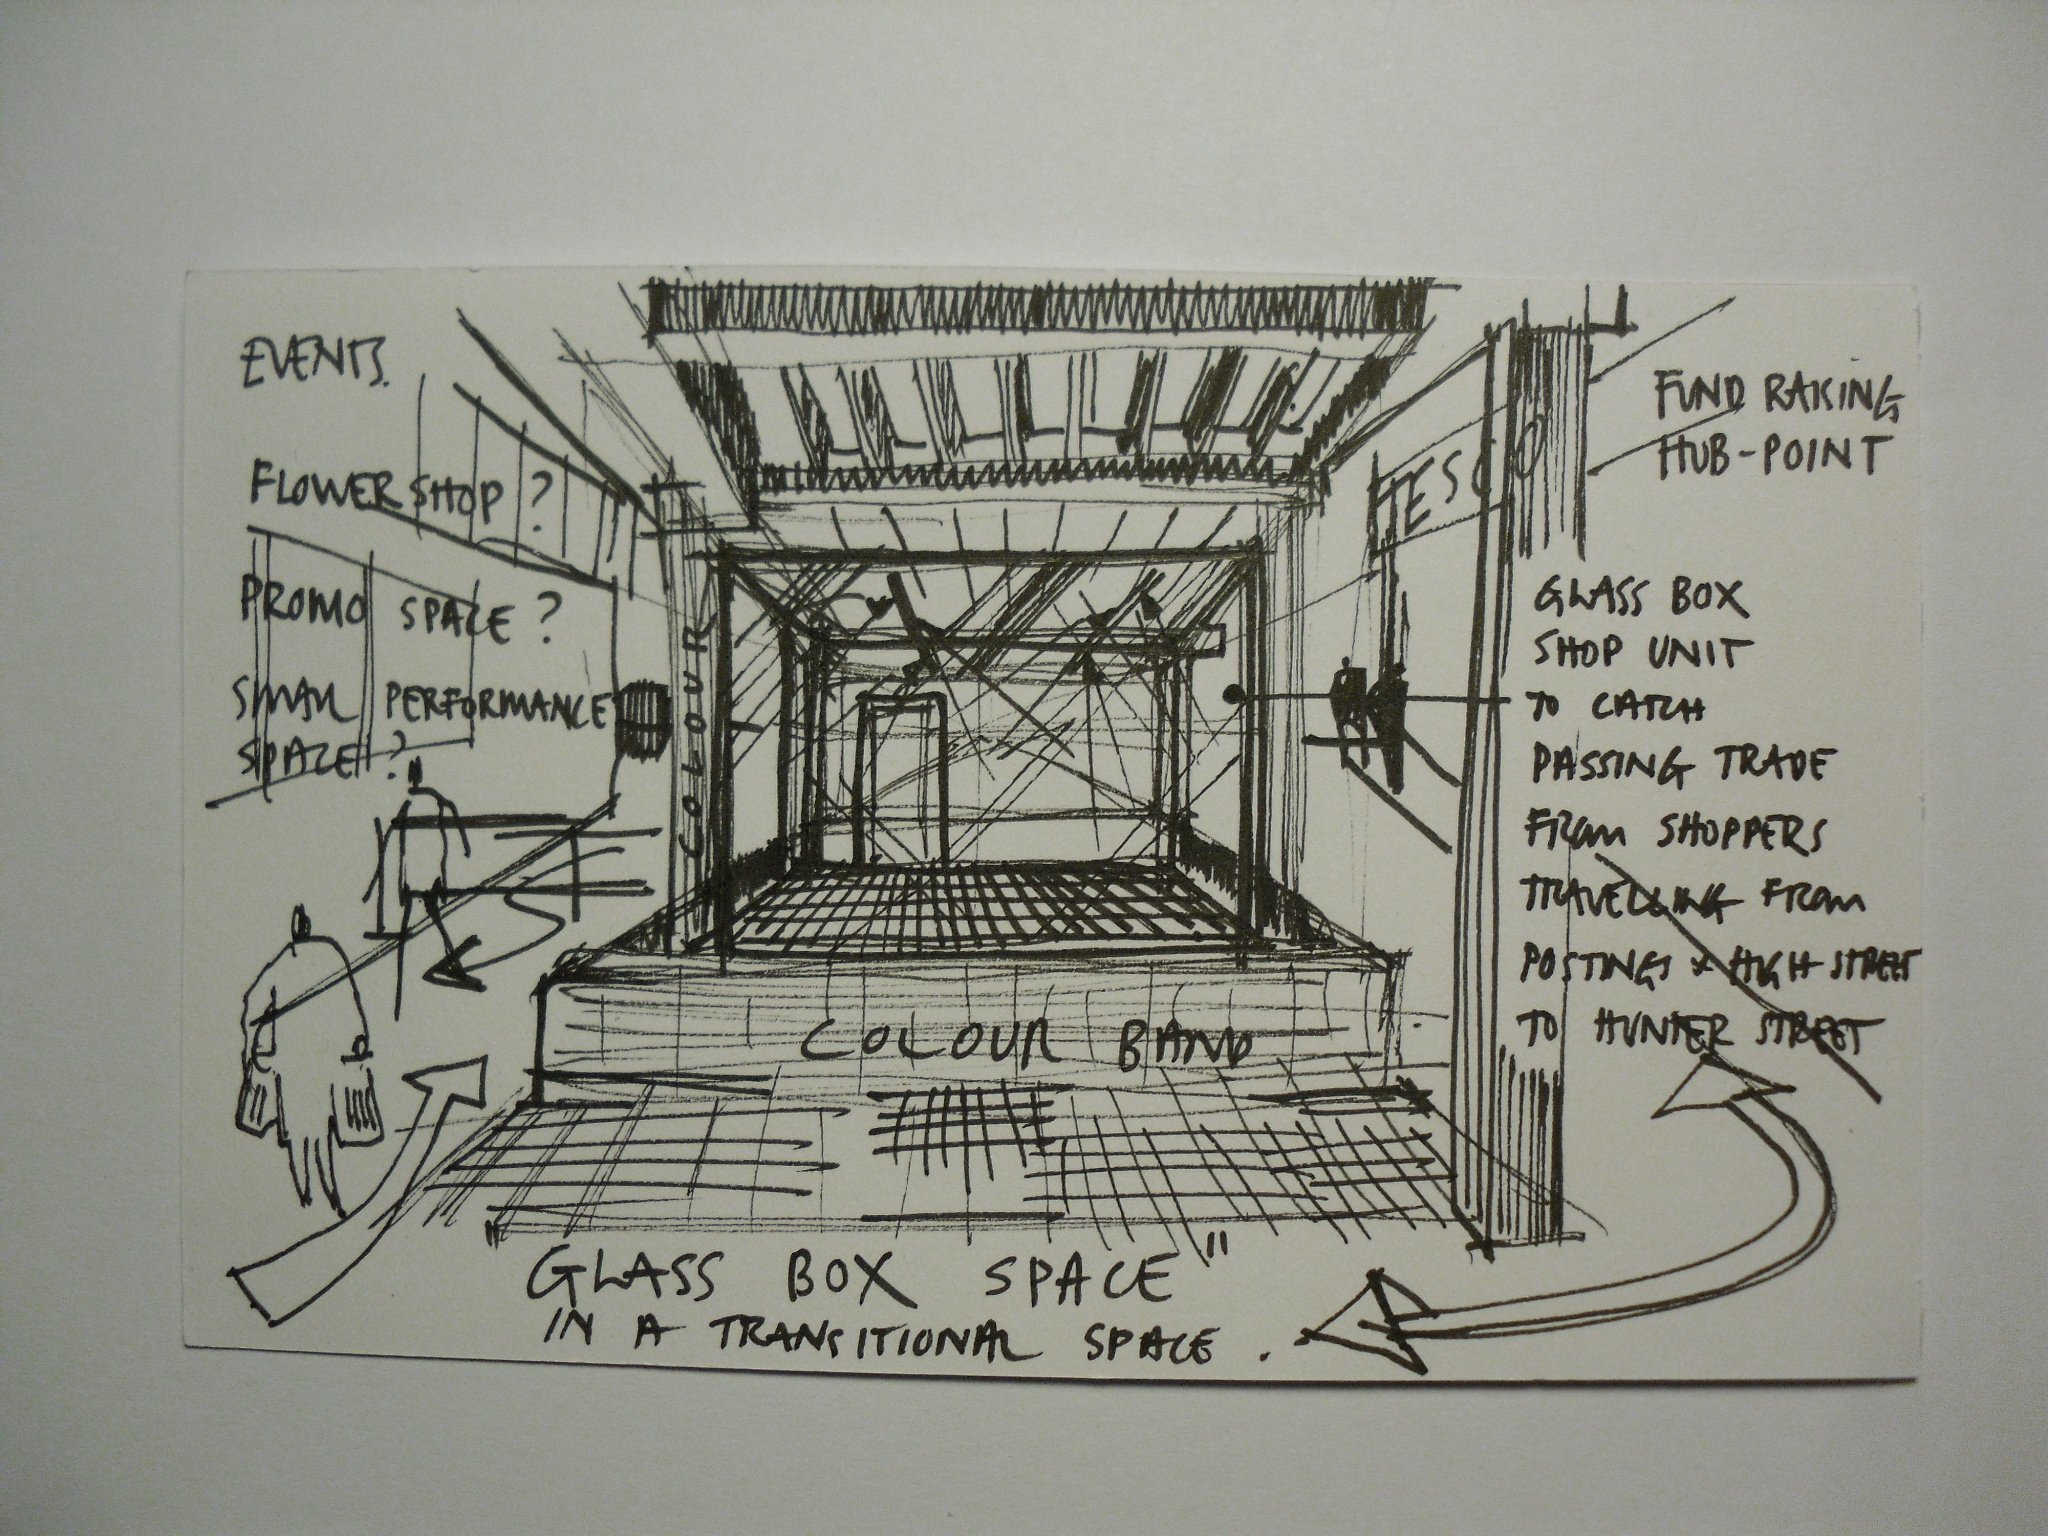 EVENTS.
FLOWER SHOP ?
PROMO SPACE ?
SMALL PERFORMANCE
SPACE ?
COLOUR
TESCO
FUND RAISING
HUB-POINT
GLASS BOX
SHOP UNIT
TO CATCH
PASSING TRADE
FROM SHOPPERS
TRAVELLING FROM
POSTINGS & HIGH STREET
TO HUNTER STREET
COLOUR BAND
GLASS BOX SPACE"
IN A TRANSITIONAL SPACE .